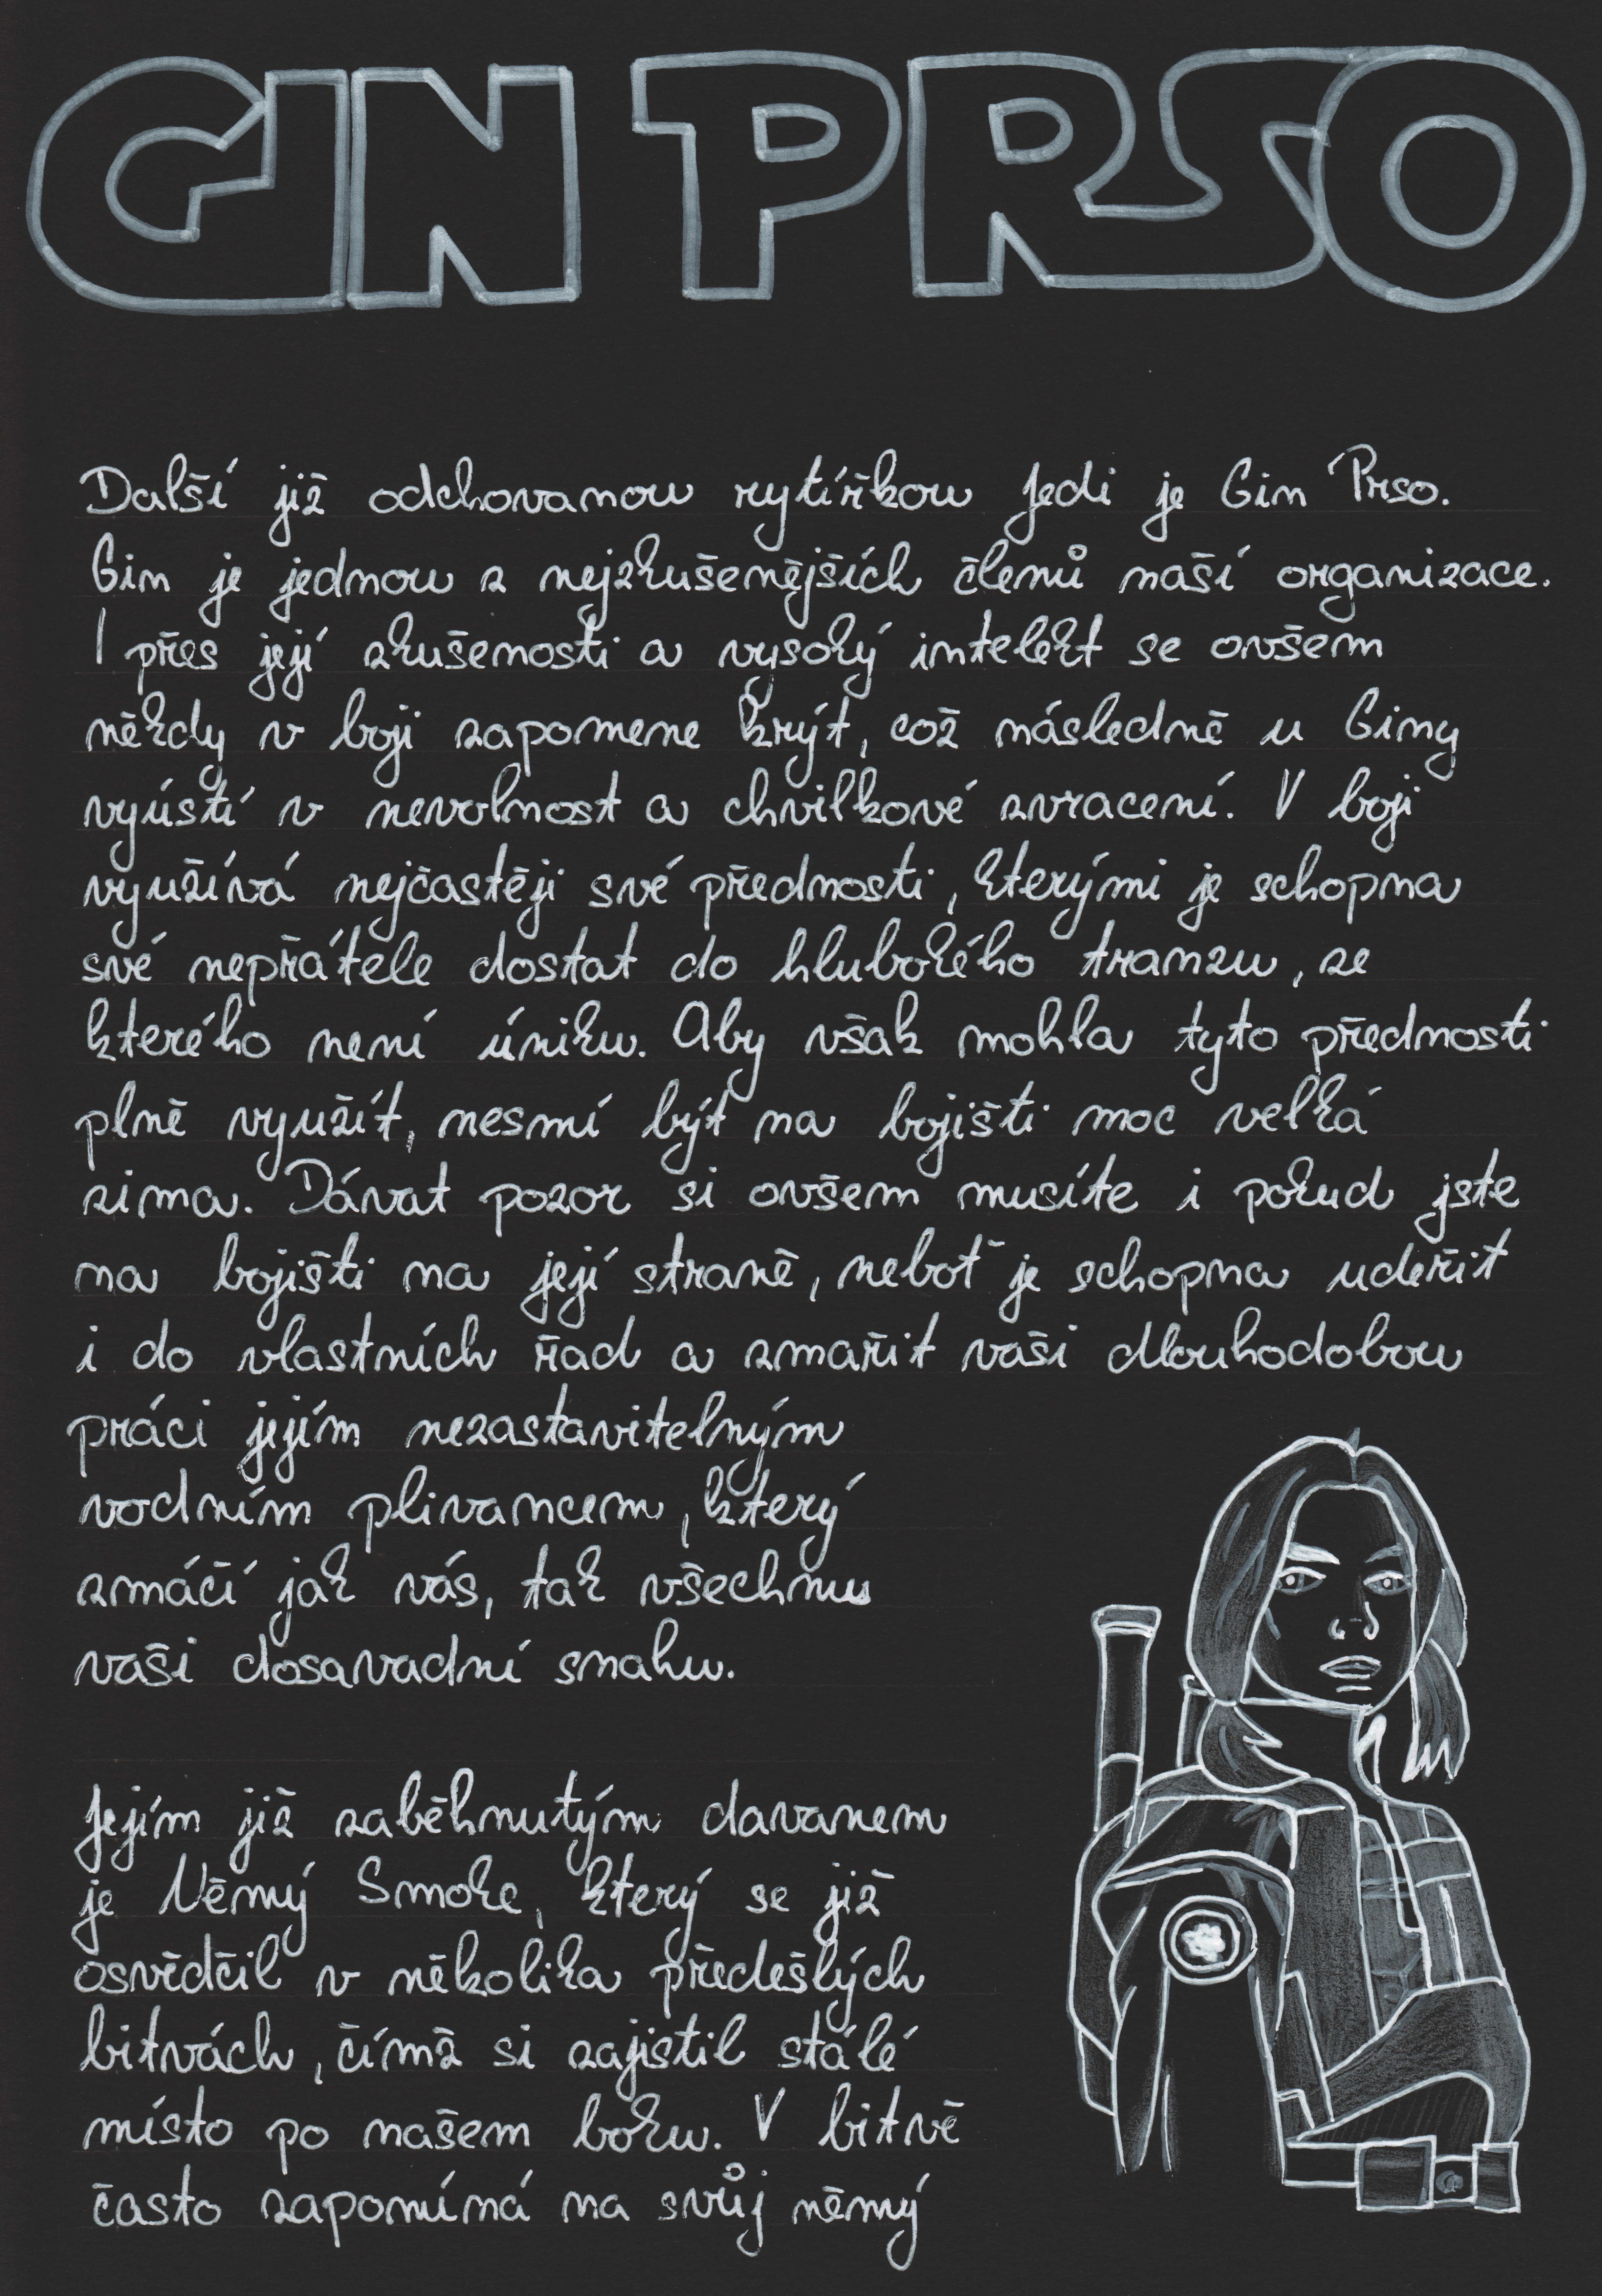 GIN PRSO
Další již odchovanou rytířkou Jedi je Gin Prso.
Gin je jednou z nejzkušenějších členů naší organizace.
I přes její zkušenosti a vysoký intelekt se ovšem
někdy v boji zapomene krýt, což následně u Giny
vyústí v nevolnost a chvilkové zvracení. V boji
využívá nejčastěji své přednosti, kterými je schopna
své nepřátele dostat do hlubokého tranzu, ze
kterého není úniku. Aby však mohla tyto přednosti
plně využít, nesmí být na bojišti moc velká
zima. Dávat pozor si ovšem musíte i pokud jste
na bojišti na její straně, neboť je schopna udeřit
i do vlastních řad a zmařit vaši dlouhodobou
práci jejím nezastavitelným
vodním plivancem, který
zmáčí jak vás, tak všechnu
vaši dosavadní snahu.
Jejím již zaběhnutým davanem
je Němý Smoke, který se již
osvědčil v několika předešlých
bitvách, čímž si zajistil stálé
místo po našem boku. V bitvě
často zapomíná na svůj němý